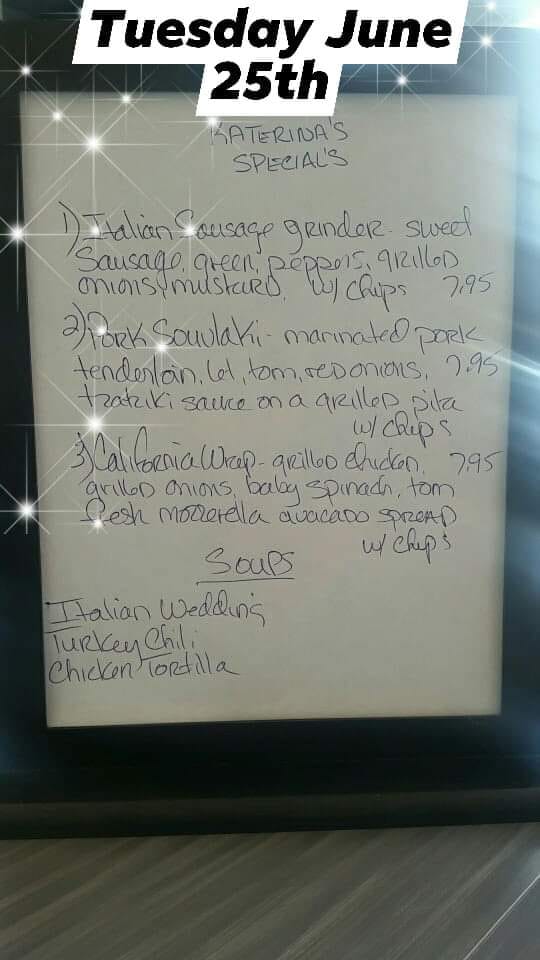 Tuesday June
25th
KATERINA'S
SPECIAL'S
1) Italian Sausage grinder - sweet
Sausage, green, peppers, grilled
onions, mustard, w/ Chips 7.95
2) Pork Souvlaki - marinated pork
tenderloin, let, tom, red onions, 7.95
tzatziki sauce on a grilled pita
w/ chips
3) California Wrap - grilled chicken, 7.95
grilled onions, baby spinach, tom
fresh mozzerella avacado spread
w/ chips
Soups
Italian Wedding
Turkey Chili
Chicken Tortilla